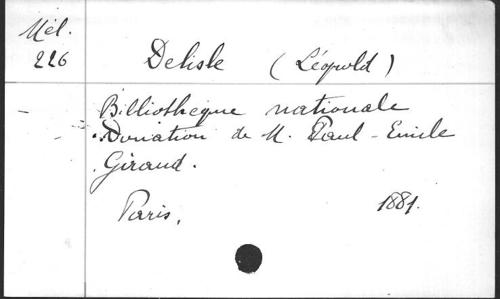 Mél.
226
Delisle (Léopold)
Bibliothèque nationale
Donation de M. Paul-Emile
Giraud.
Paris, 1881.